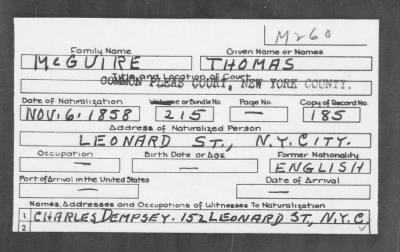 M260
Family Name Given Name or Names
McGUIRE THOMAS
Title and Location of Court
COMMON PLEAS COURT, NEW YORK COUNTY.
Date of Naturalization Volume or Bundle No. Page No. Copy of Record No.
NOV. 6. 1858 215 — 185
Address of Naturalized Person
LEONARD ST., N.Y. CITY.
Occupation Birth Date or Age Former Nationality
— — ENGLISH
Port of Arrival in the United States Date of Arrival
— —
Names, Addresses and Occupations of Witnesses To Naturalization
1 CHARLES DEMPSEY. 152 LEONARD ST., N.Y.C.
2